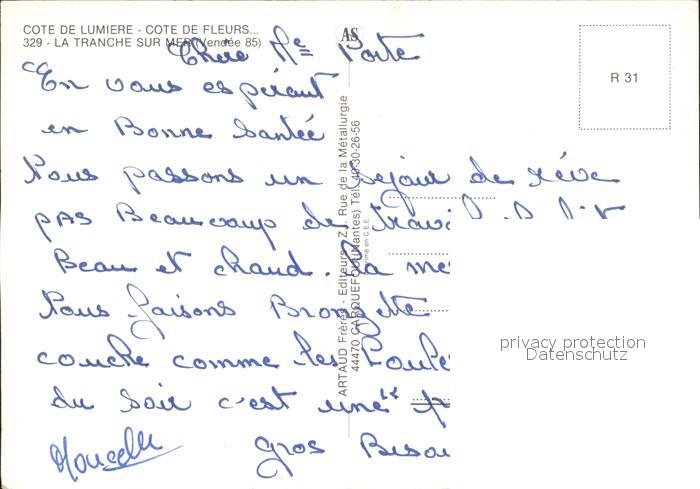 COTE DE LUMIERE - COTE DE FLEURS...
329 - LA TRANCHE SUR MER (Vendée 85)
AS
R 31
Chère Me Porte
En vous espérant
en Bonne Santée
Nous passons un Sejour de rêve
pas Beaucoup de
Beau et chaud. la
Nous faisons Bronzette
couche comme les
du Soir c'est une
gros
Marcelle
ARTAUD Frères - Editeurs - Z.I. Rue de la Métallurgie
44470 CARQUEFOU (Nantes) Tél. 40-30-26-56
privacy protection
Datenschutz